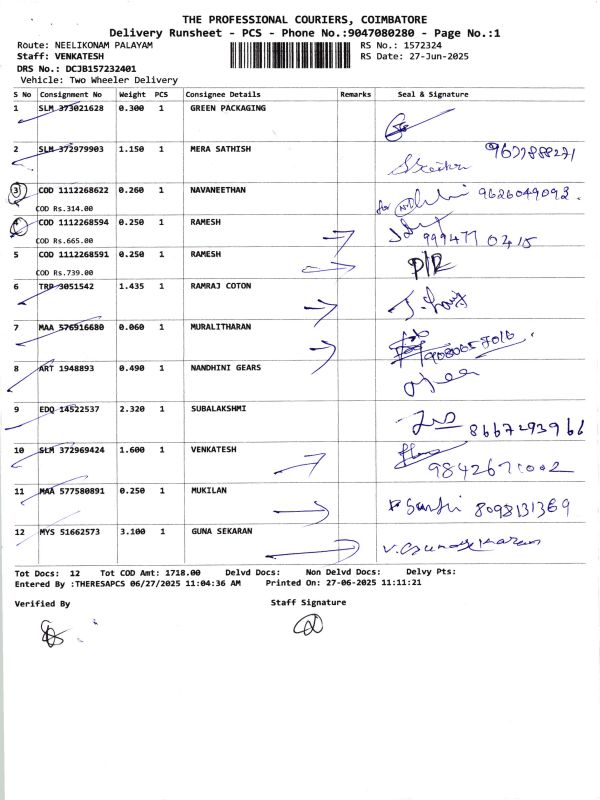 THE PROFESSIONAL COURIERS, COIMBATORE
Delivery Runsheet - PCS - Phone No.:9047080280 - Page No.:1
Route: NEELIKONAM PALAYAM RS No.: 1572324
Staff: VENKATESH RS Date: 27-Jun-2025
DRS No.: DCJB157232401
Vehicle: Two Wheeler Delivery
S No Consignment No Weight PCS Consignee Details Remarks Seal & Signature
1 SLM 373021628 0.300 1 GREEN PACKAGING
2 SLM 372979903 1.150 1 MERA SATHISH
3 COD 1112268622 0.260 1 NAVANEETHAN 9626049092.
COD Rs.314.00
4 COD 1112268594 0.250 1 RAMESH
COD Rs.665.00 9994770415
5 COD 1112268591 0.250 1 RAMESH P/R
COD Rs.739.00
6 TRP 3051542 1.435 1 RAMRAJ COTON
7 MAA 576916680 0.060 1 MURALITHARAN
8 ART 1948893 0.490 1 NANDHINI GEARS
9 EDQ 14522537 2.320 1 SUBALAKSHMI
8667293966
10 SLM 372969424 1.600 1 VENKATESH
9842671002
11 MAA 577580891 0.250 1 MUKILAN 8098131369
12 MYS 51662573 3.100 1 GUNA SEKARAN V. Gunasekaran
Tot Docs: 12 Tot COD Amt: 1718.00 Delvd Docs: Non Delvd Docs: Delvy Pts:
Entered By :THERESAPCS 06/27/2025 11:04:36 AM Printed On: 27-06-2025 11:11:21
Verified By Staff Signature